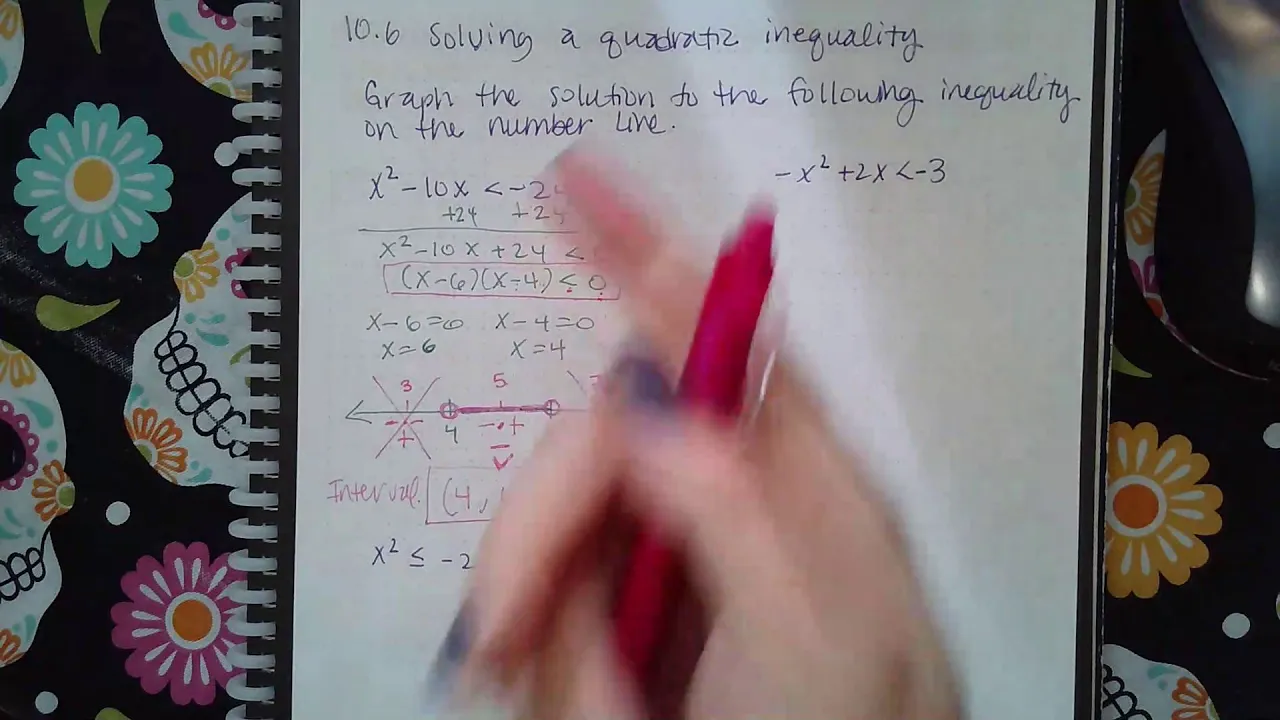 10.6 Solving a quadratic inequality
Graph the solution to the following inequality
on the number line.
x² - 10x < -24
+24 +24
x² - 10x + 24 <
(x-6)(x-4) < 0
x-6=0 x-4=0
x=6 x=4
3 5
4 - · +
+ -
Interval: (4,
x² ≤ -2
-x² + 2x < -3